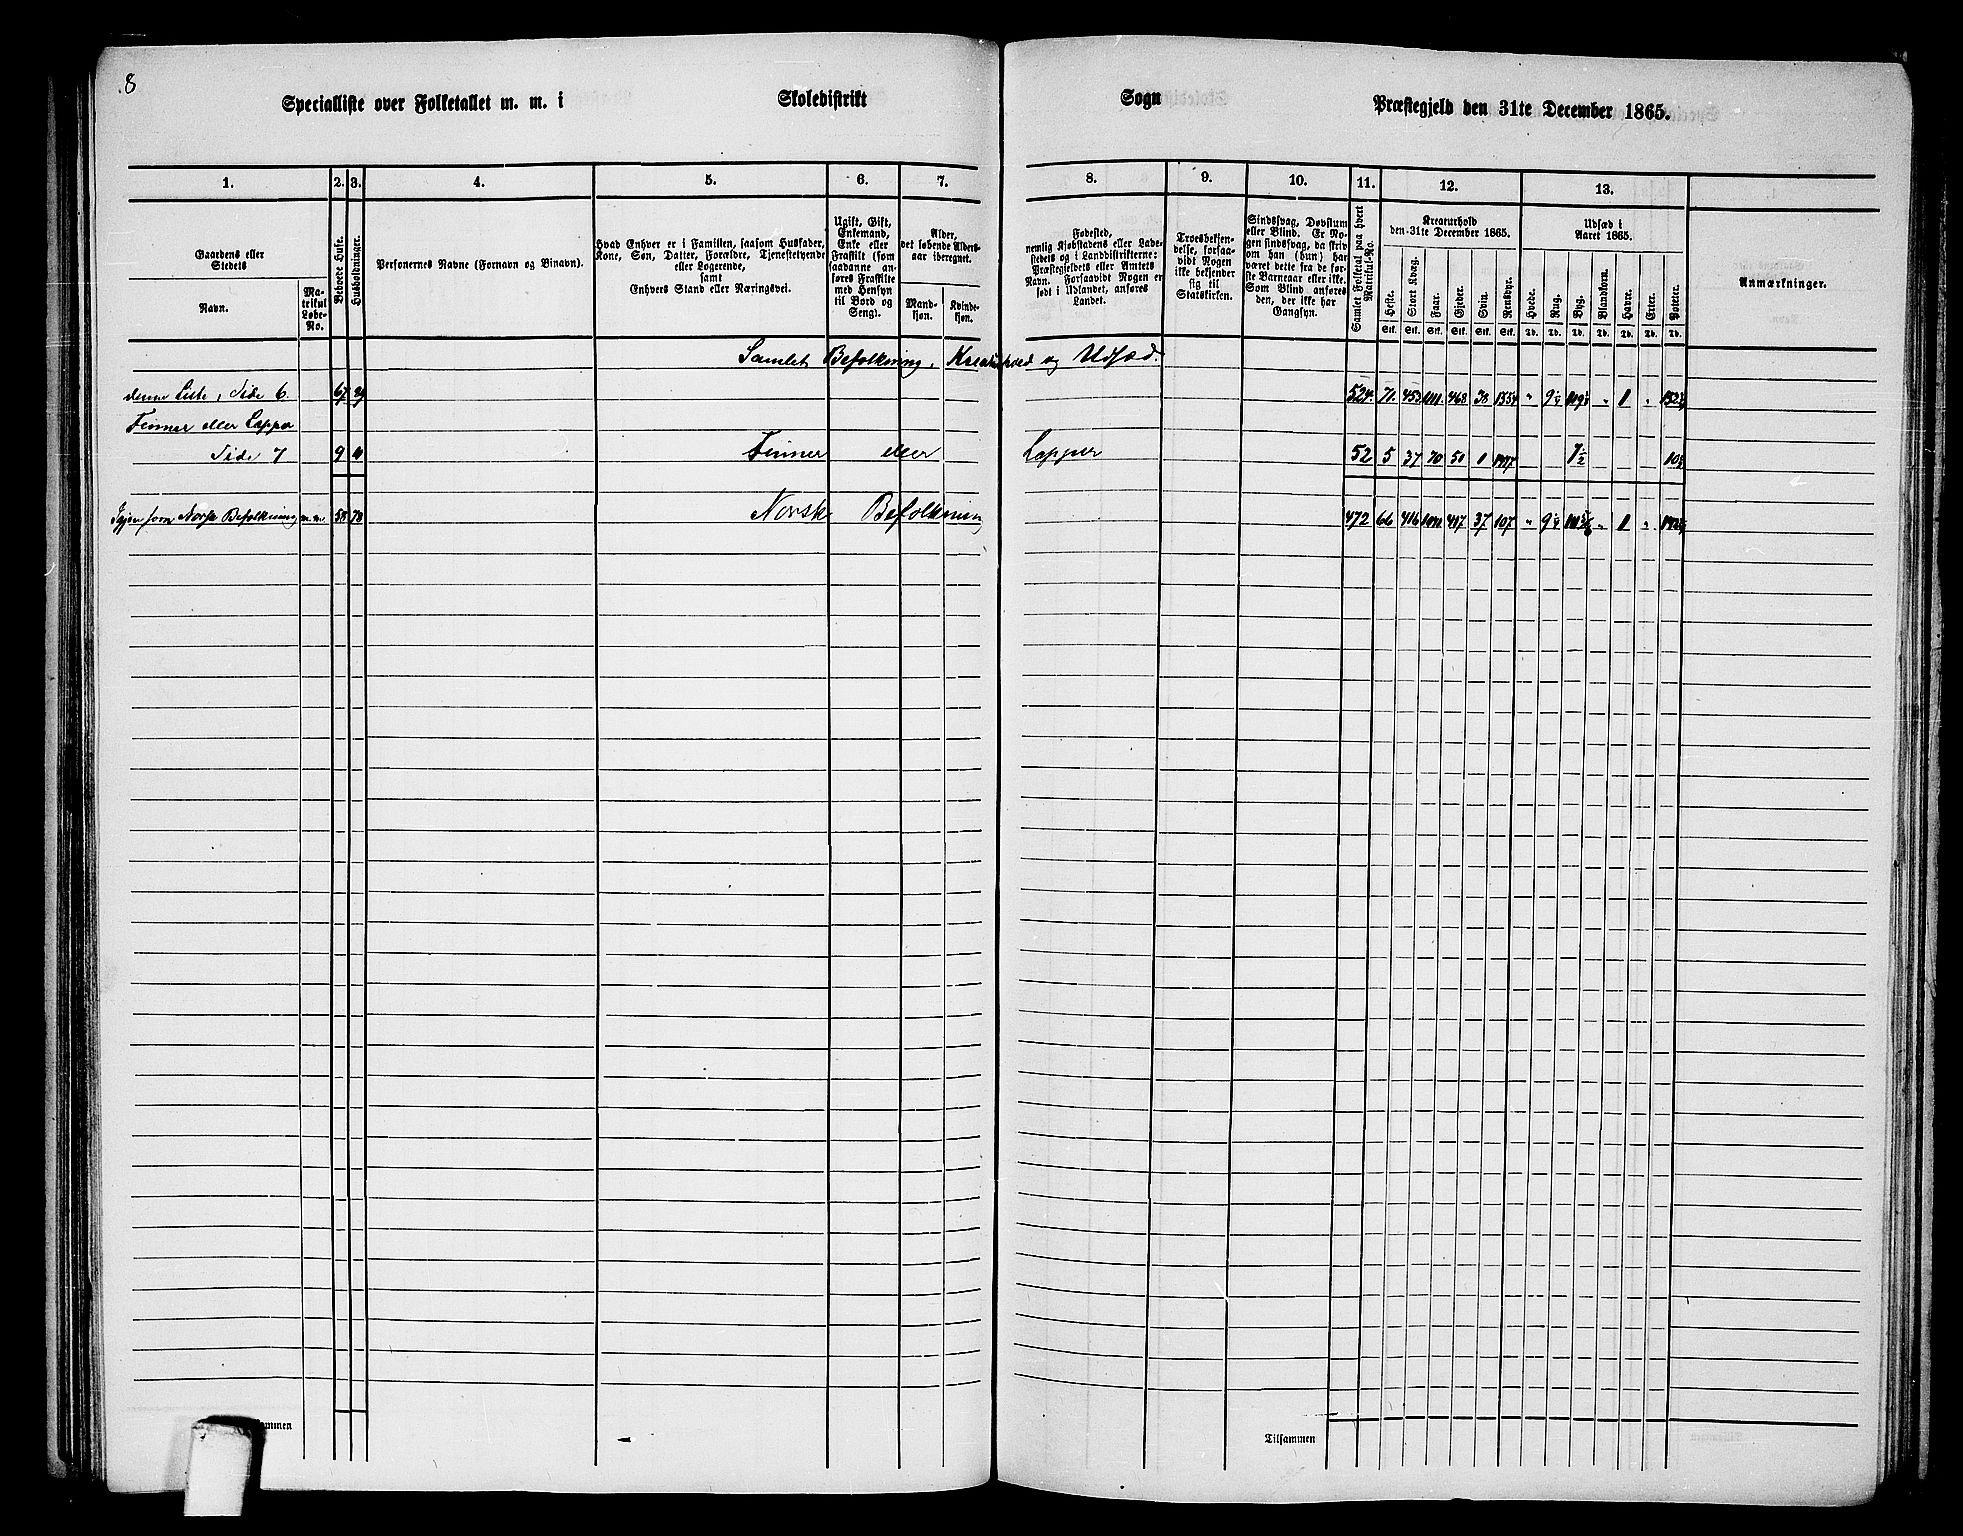 8
Specialliste over Folketallet m. m. i Skoledistrikt Sogn Præstegjeld den 31te December 1865.
1. 2. 3. 4. 5. 6. 7. 8. 9. 10. 11. 12. 13.
Gaardens eller
Stedets
Navn.
Matrikul Løbe-No.
Beboede Huse.
Husholdninger.
Personernes Navne (Fornavn og Binavn).
Hvad Enhver er i Familien, saasom Husfader,
Kone, Søn, Datter, Forældre, Tjenestetyende
eller Logerende,
samt
Enhvers Stand eller Næringsvei.
Ugift, Gift,
Enkemand,
Enke eller
Fraskilt (som
saadanne an-
føres Fraskilte
med Hensyn
til Bord og
Seng).
Alder,
det løbende Alders-
aar iberegnet.
Mand-
kjøn.
Kvinde-
kjøn.
Fødested,
nemlig Kjøbstadens eller Lade-
stedets og i Landdistrikterne:
Præstegjeldets eller Amtets
Navn. Forsaavidt Nogen er
født i Udlandet, anføres
Landet.
Troesbekjen-
delse, forsaa-
vidt Nogen
ikke bekjender
sig til
Statskirken.
Sindssvag, Døvstum
eller Blind. Er No-
gen sindssvag, da skriv
om han (hun) har
været dette fra de før-
ste Barneaar eller ikke.
Som Blind anføres
den, der ikke har
Gangsyn.
Samlet Folketal paa hvert
Matrikul-No.
Kreaturhold
den 31te December 1865.
Heste. Stort Kvæg. Faar. Gjeder. Sviin. Rensdyr.
Stk. Stk. Stk. Stk. Stk. Stk.
Udsæd i
Aaret 1865.
Hvede. Rug. Byg. Blandkorn. Havre. Erter. Poteter.
Td. Td. Td. Td. Td. Td. Td.
Anmærkninger.
Samlet Befolkning, Kreaturhold og Udsæd.
denne Liste, Side 6. 67 524. 71. 453 468 38 1 "
Finner eller Lapper
Side 7 9 Finner eller Lapper 52 5 37 70 51 1 7½
Norsk Befolkning m.m. 58 78 Norsk Befolkning 472 66 416 417 37 107 " 1 "
Tilsammen